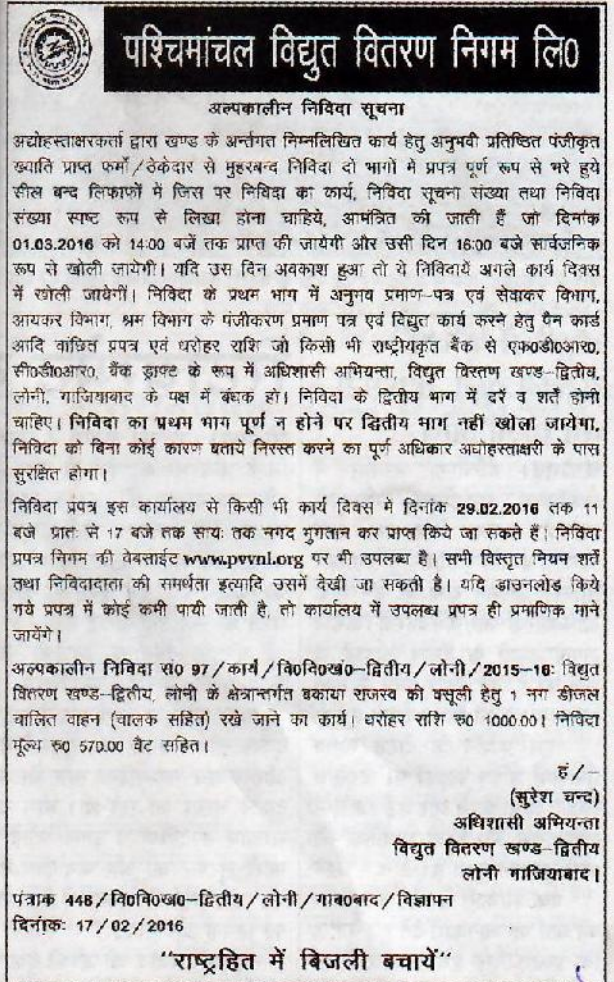 पश्चिमांचल विद्युत वितरण निगम लि0
अल्पकालीन निविदा सूचना
अद्योहस्ताक्षरकर्ता द्वारा खण्ड के अर्न्तगत निम्नलिखित कार्य हेतु अनुभवी प्रतिष्ठित पंजीकृत
ख्याति प्राप्त फर्मो/ठेकेदार से मुहरबन्द निविदा दो भागों में प्रपत्र पूर्ण रूप से भरे हुये
सील बन्द लिफाफों में जिस पर निविदा का कार्य, निविदा सूचना संख्या तथा निविदा
संख्या स्पष्ट रूप से लिखा होना चाहिये, आमंत्रित की जाती हैं जो दिनांक
01.03.2016 को 14:00 बजें तक प्राप्त की जायेगी और उसी दिन 16:00 बजे सार्वजनिक
रूप से खोली जायेगी। यदि उस दिन अवकाश हुआ तो ये निविदायें अगले कार्य दिवस
में खोली जायेगीं। निविदा के प्रथम भाग में अनुभव प्रमाण-पत्र एवं सेवाकर विभाग,
आयकर विभाग, श्रम विभाग के पंजीकरण प्रमाण पत्र एवं विद्युत कार्य करने हेतु पैन कार्ड
आदि वांछित प्रपत्र एवं धरोहर राशि जो किसी भी राष्ट्रीयकृत बैंक से एफ0डी0आर0,
सी0डी0आर0, बैंक ड्राफ्ट के रूप में अधिशासी अभियन्ता, विद्युत वितरण खण्ड-द्वितीय,
लोनी, गाजियाबाद के पक्ष में बंधक हो। निविदा के द्वितीय भाग में दरें व शर्तें होनी
चाहिए। निविदा का प्रथम भाग पूर्ण न होने पर द्वितीय भाग नहीं खोला जायेगा,
निविदा को बिना कोई कारण बताये निरस्त करने का पूर्ण अधिकार अधोहस्ताक्षरी के पास
सुरक्षित होगा।
निविदा प्रपत्र इस कार्यालय से किसी भी कार्य दिवस में दिनांक 29.02.2016 तक 11
बजे प्रातः से 17 बजे तक सायः तक नगद भुगतान कर प्राप्त किये जा सकते हैं। निविदा
प्रपत्र निगम की वेबसाईट www.pvvnl.org पर भी उपलब्ध है। सभी विस्तृत नियम शर्ते
तथा निविदादाता की समर्थता इत्यादि उसमें देखी जा सकती है। यदि डाउनलोड किये
गये प्रपत्र में कोई कमी पायी जाती है, तो कार्यालय में उपलब्ध प्रपत्र ही प्रमाणिक माने
जायेंगे।
अल्पकालीन निविदा सं0 97/कार्य/वि0वि0खं0-द्वितीय/लोनी/2015-16: विद्युत
वितरण खण्ड-द्वितीय, लोनी के क्षेत्रान्तर्गत बकाया राजस्व की वसूली हेतु 1 नग डीजल
चालित वाहन (चालक सहित) रखे जाने का कार्य। धरोहर राशि रु0 1000.00। निविदा
मूल्य रु0 570.00 वैट सहित।
ह/
(सुरेश चन्द)
अधिशासी अभियन्ता
विद्युत वितरण खण्ड-द्वितीय
लोनी गाजियाबाद।
पत्रांक 448/वि0वि0ख0-द्वितीय/लोनी/गा0बाद/विज्ञापन
दिनांक: 17/02/2016
"राष्ट्रहित में बिजली बचायें"